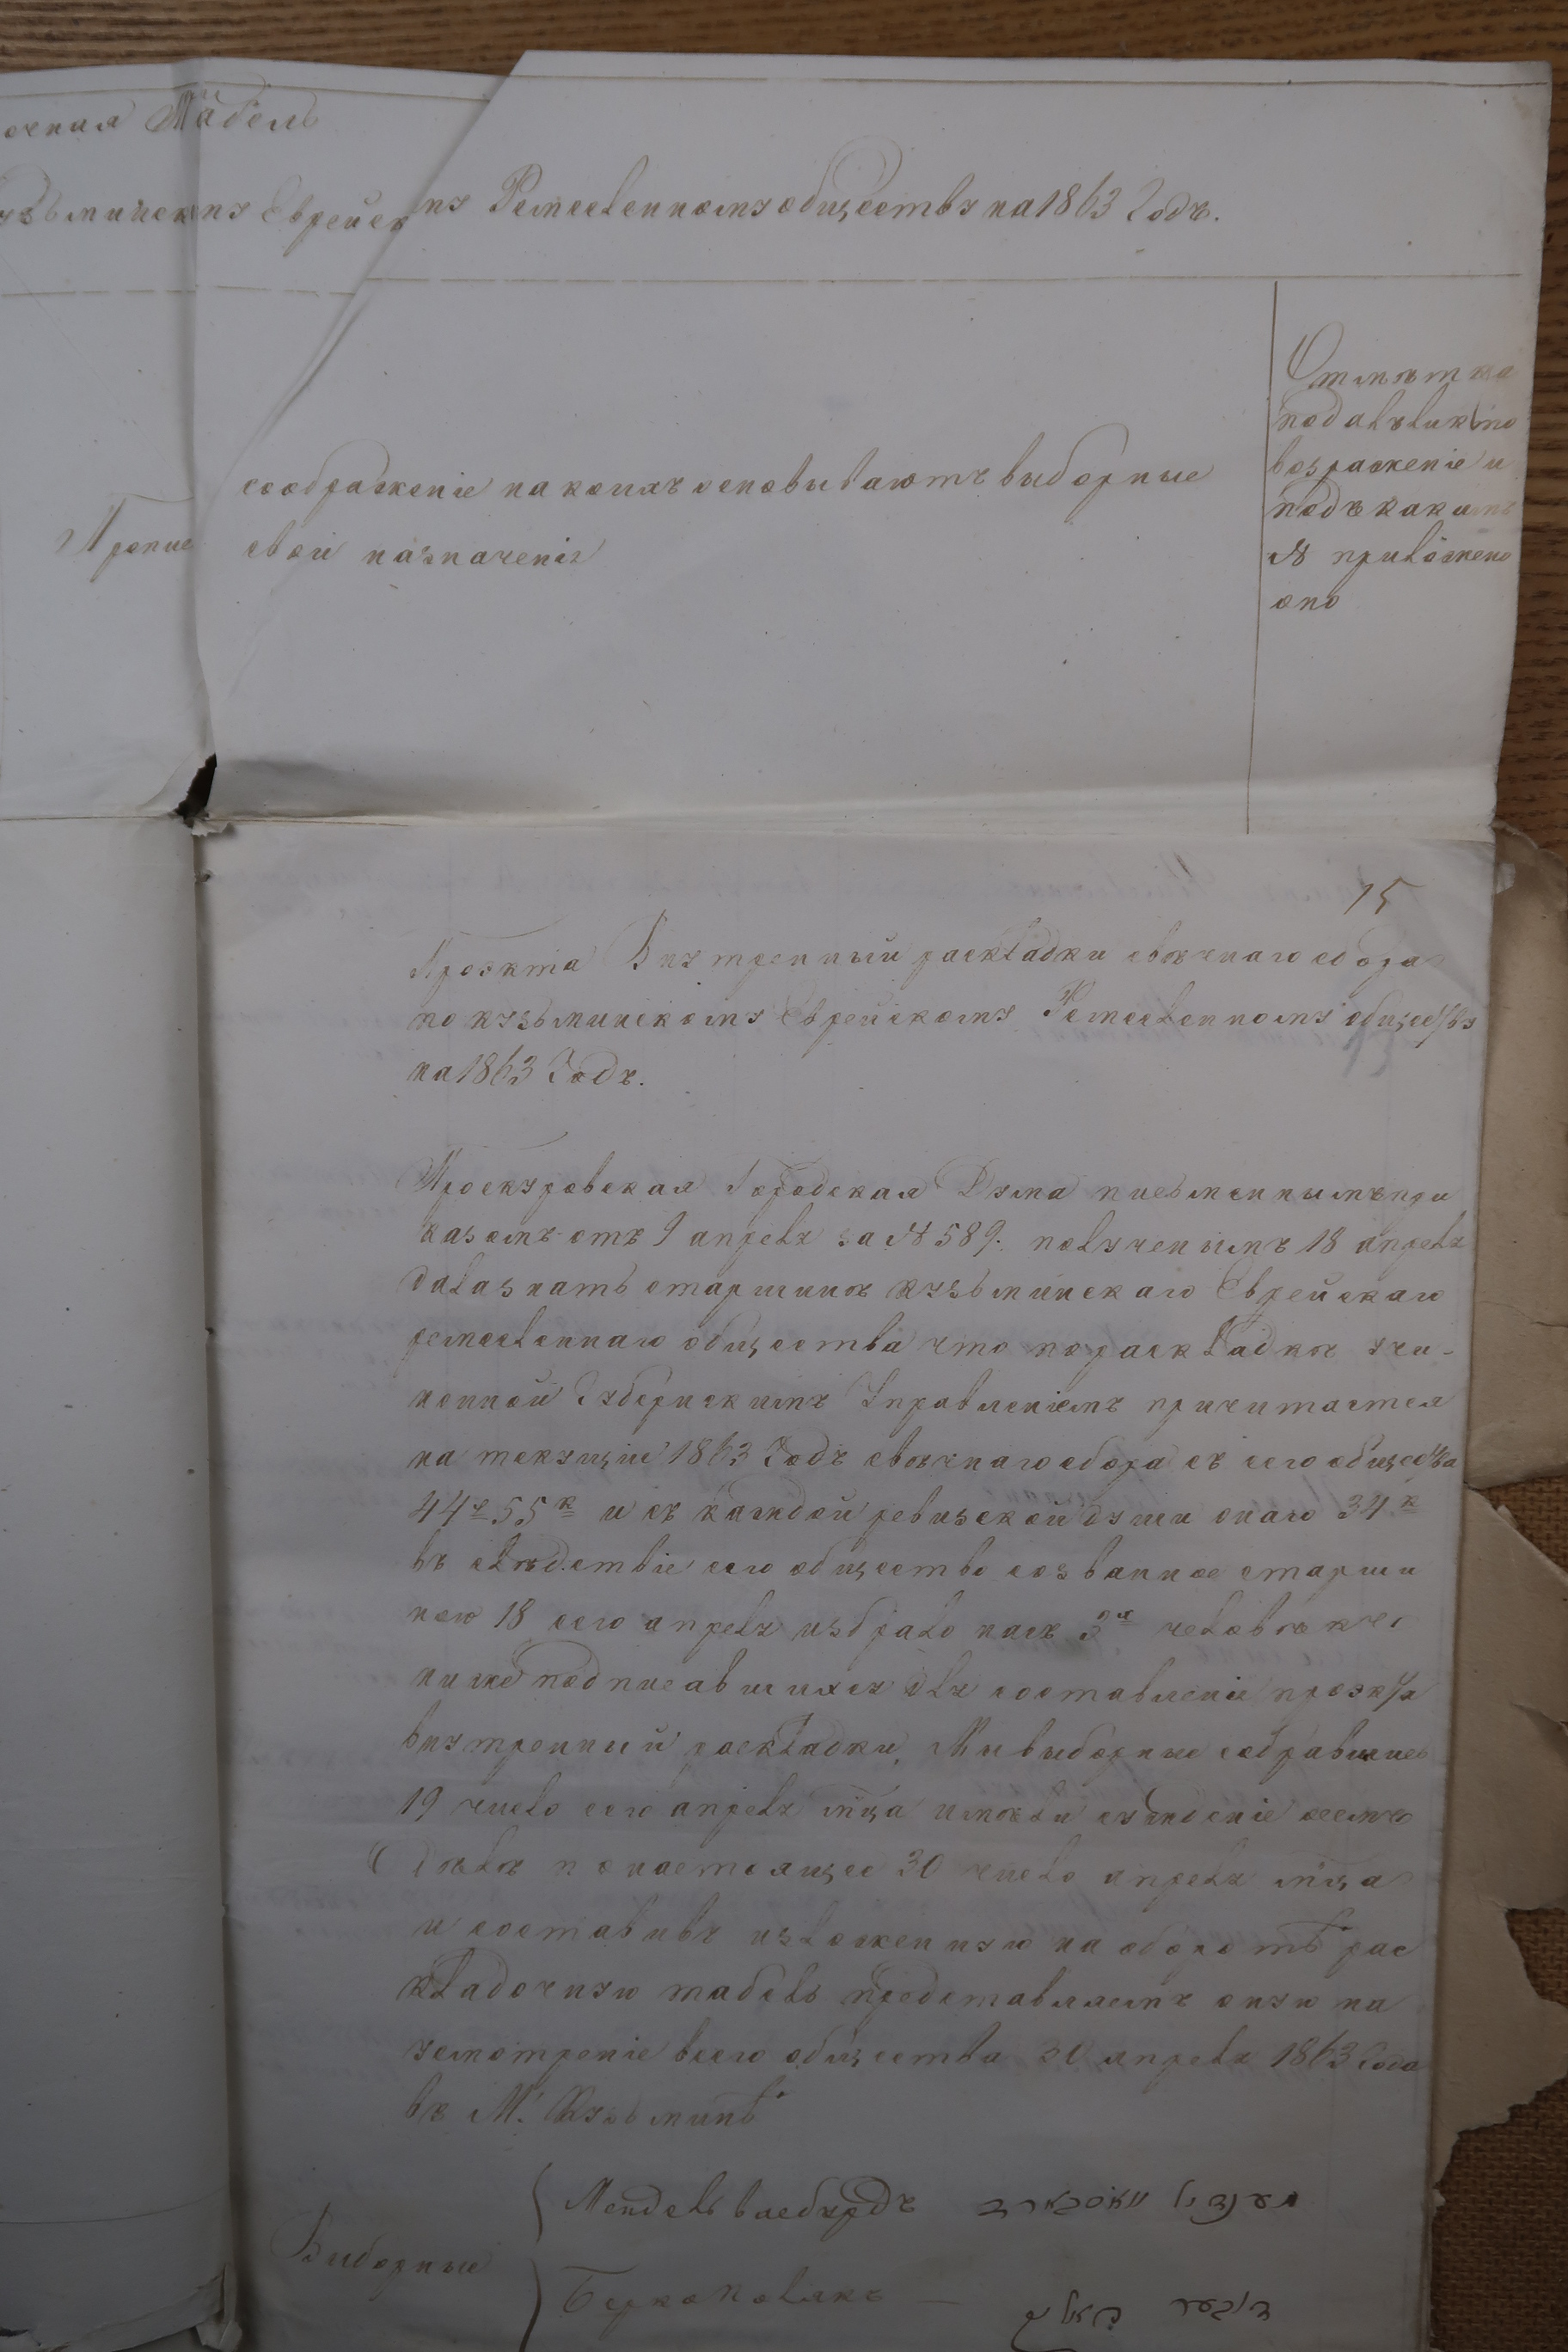 очная Табель
узьминскомъ Еврейскомъ Ремесленномъ обществу на 1863 Годъ.
соображеніе на коихъ основываютъ выборные
свои назначенія
Отмѣтка
подавъли кто
возраженіе и
подъ какимъ
№ приложено
оно
15
Проэкта Внутренный раскладки свѣчнаго сбора
по кузьминскому Еврейскому Ремесленному обществу
на 1863 Годъ.
Проскуровская Городская Дума письменнымъ при
казомъ отъ 9 апреля за № 589. полученымъ 18 апреля
дала знать старшинѣ кузьминскаго Еврейскаго
ремесленнаго общества что по раскладкѣ учи-
ненной Губернскимъ Управленіемъ причитается
на текущій 1863 Годъ свѣчнаго сбора съ сего общества
44 р 55 к и съ каждой ревизской души онаго 34 к
въ слѣдствіе сего общество созванное старши
ною 18 сего апреля избрало насъ 3х человѣкъ
ниже подписавшихся для составленіе проэкта
внутренный раскладки, Мы выборные собравшись
19 число сего апреля мца имѣли сужденіе о семъ
дѣлѣ по настоящее 30 число апреля мца
и составивъ изложенную на оборотѣ рас
кладочную табель представляемъ оную на
усмотреніе всего общества 30 апреля 1863 Года
въ М. Кузьминѣ
Мендель васбурдъ מענדיל וואסבארד
Выборные
Берко Полякъ —